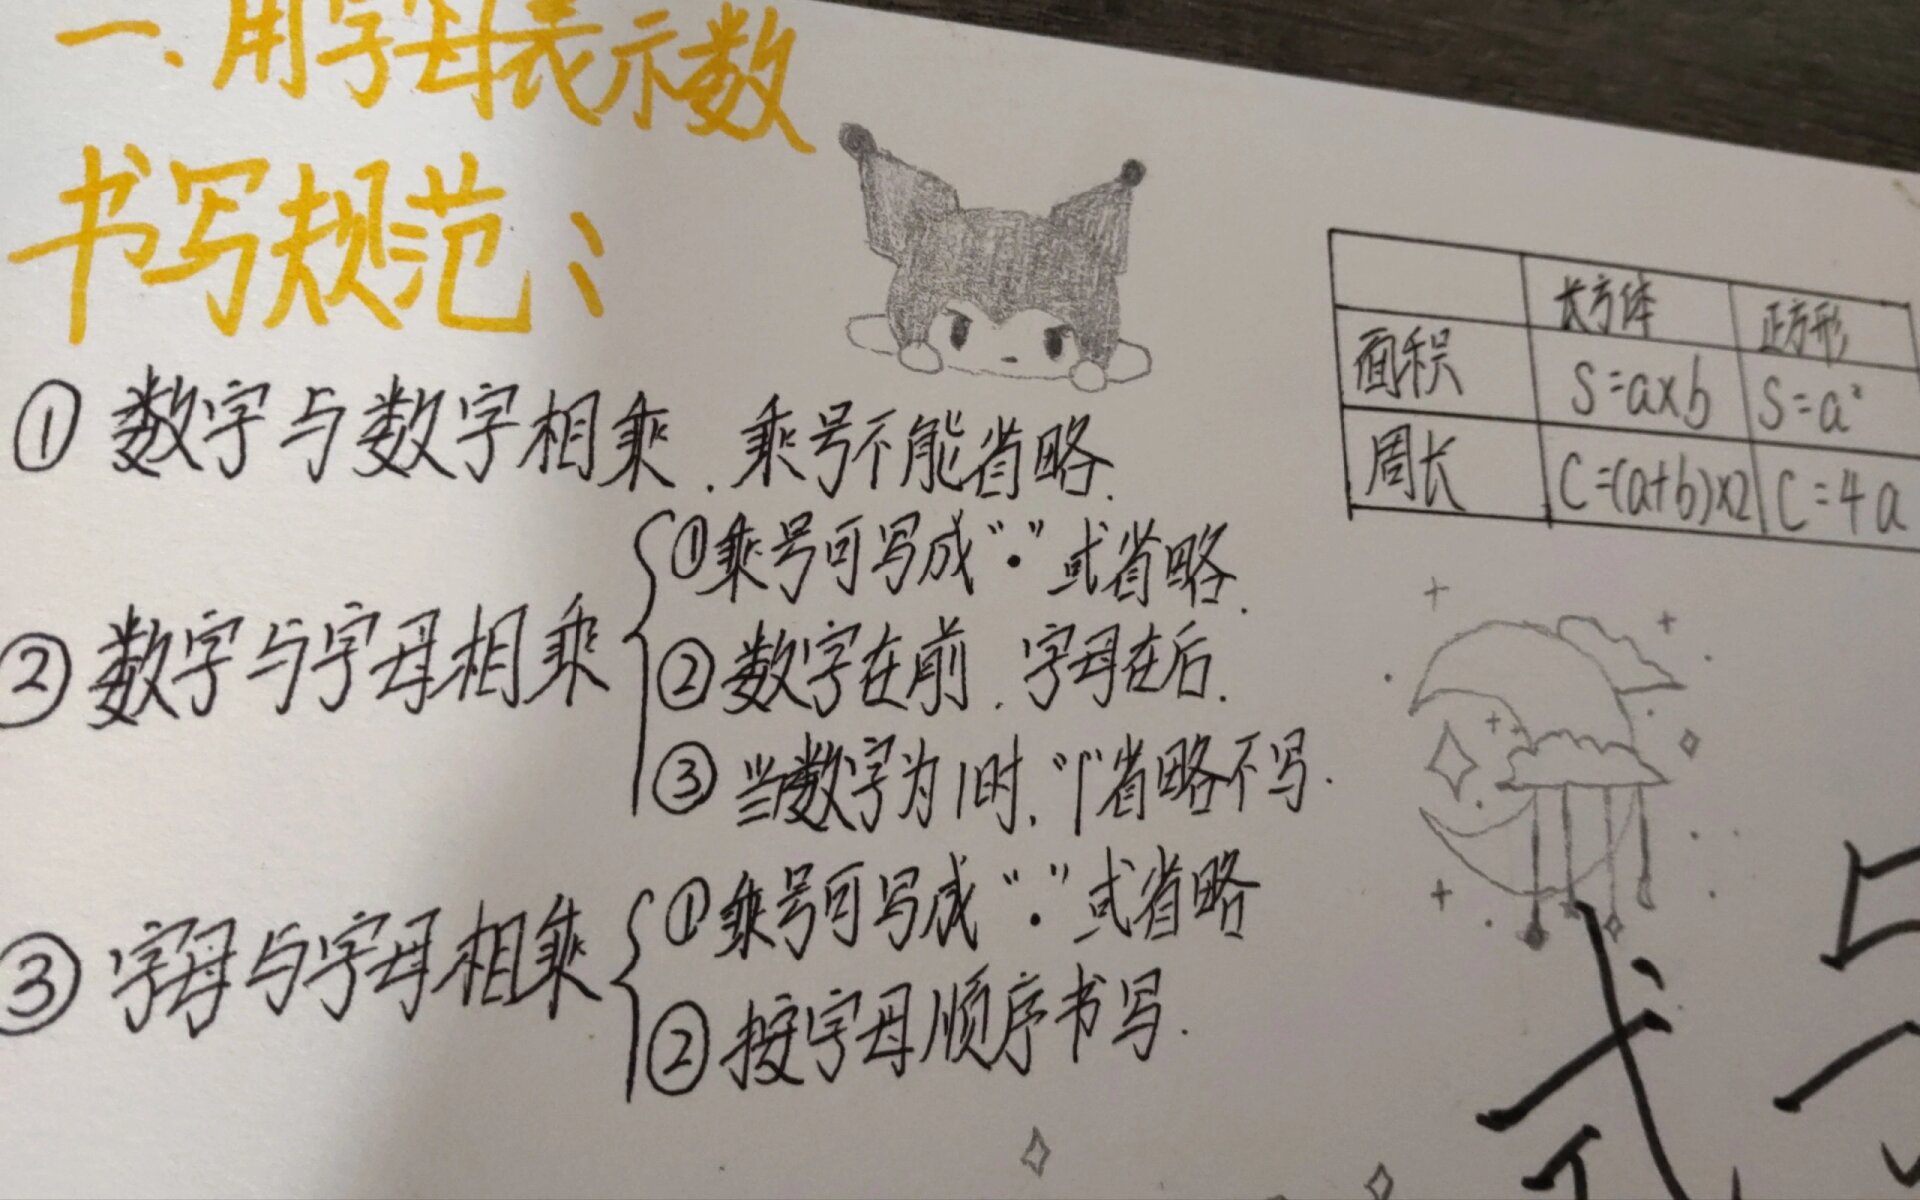 一.用字母表示数
书写规范：
①数字与数字相乘.乘号不能省略.
②数字与字母相乘
①乘号可写成“·”或省略.
②数字在前.字母在后.
③当数字为1时.“1”省略不写.
③字母与字母相乘
①乘号可写成“·”或省略
②按字母顺序书写.
长方体 正方形
面积 S=a×b S=a²
周长 C=(a+b)×2 C=4a
式